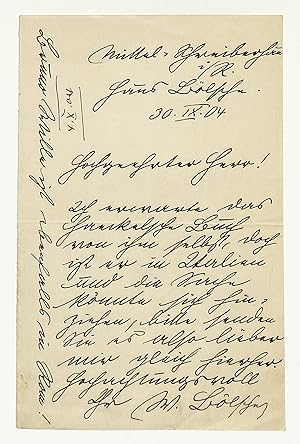 Mittel-Schreiberhau
i/R.
Haus Bölsche.
30. IX. 04
Hochgeehrter Herr!
Ich erwarte das
Haeckelsche Buch
von ihm selbst, doch
ist er in Italien
und die Sache
könnte sich hin-
ziehen, bitte senden
Sie es also lieber
mir gleich hierher.
Hochachtungsvoll
Ihr W. Bölsche
ist ebenfalls in Rom!